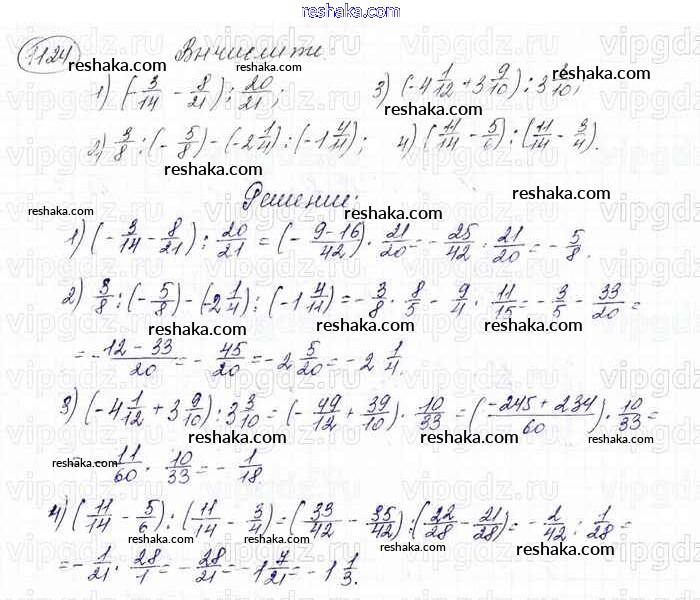 reshaka.com
1124 Вычислите:
1) (-3/14 - 8/21) : 20/21; 3) (-4 1/12 + 3 9/10) : 3 3/10;
2) 3/8 : (-5/8) - (-2 1/4) : (-1 4/11); 4) (11/14 - 5/6) : (11/14 - 3/4).
Решение:
1) (-3/14 - 8/21) : 20/21 = (-9-16/42) · 21/20 = -25/42 · 21/20 = -5/8.
2) 3/8 : (-5/8) - (-2 1/4) : (-1 4/11) = -3/8 · 8/5 - 9/4 · 11/15 = -3/5 - 33/20 =
= -12-33/20 = -45/20 = -2 5/20 = -2 1/4.
3) (-4 1/12 + 3 9/10) : 3 3/10 = (-49/12 + 39/10) · 10/33 = (-245+234/60) · 10/33 =
= -11/60 · 10/33 = -1/18.
4) (11/14 - 5/6) : (11/14 - 3/4) = (33/42 - 35/42) : (22/28 - 21/28) = -2/42 : 1/28 =
= -1/21 · 28/1 = -28/21 = -1 7/21 = -1 1/3.